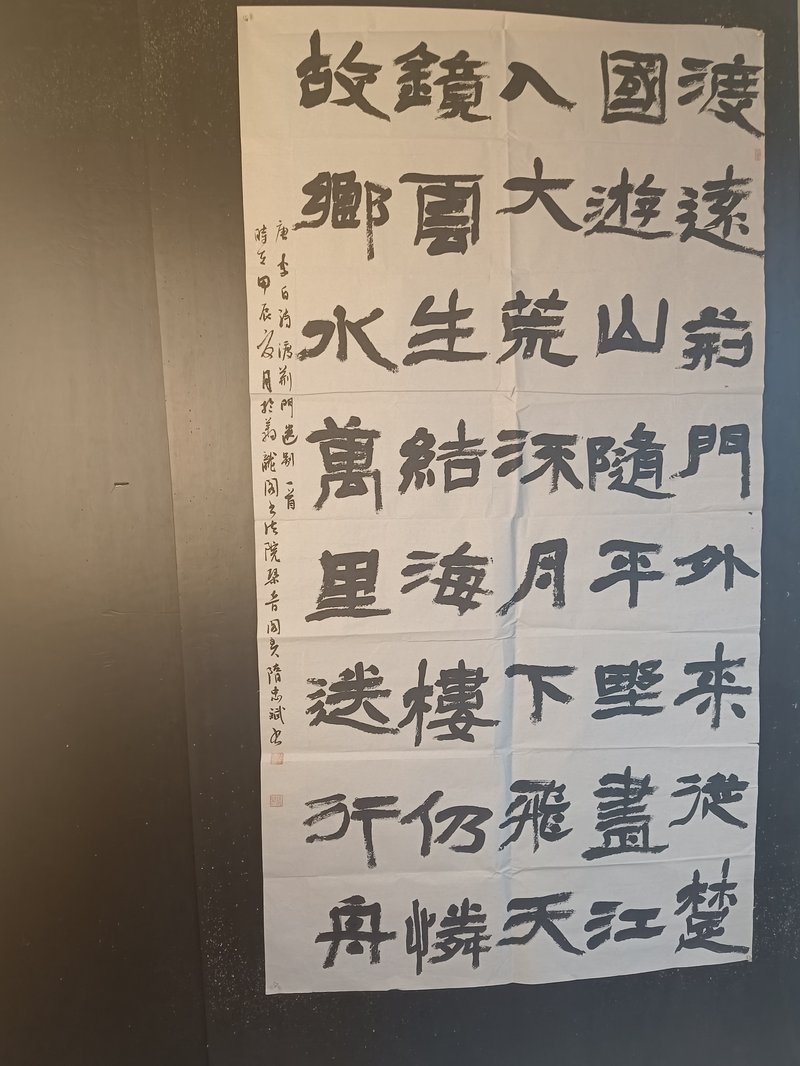 渡遠荊門外来從楚
國遊山隨平野盡江
入大荒流月下飛天
鏡雲生結海樓仍憐
故鄉水萬里送行舟
唐李白詩渡荊門送别一首
時在甲辰夏月於龍阁书法院琴音阁隋忠斌书